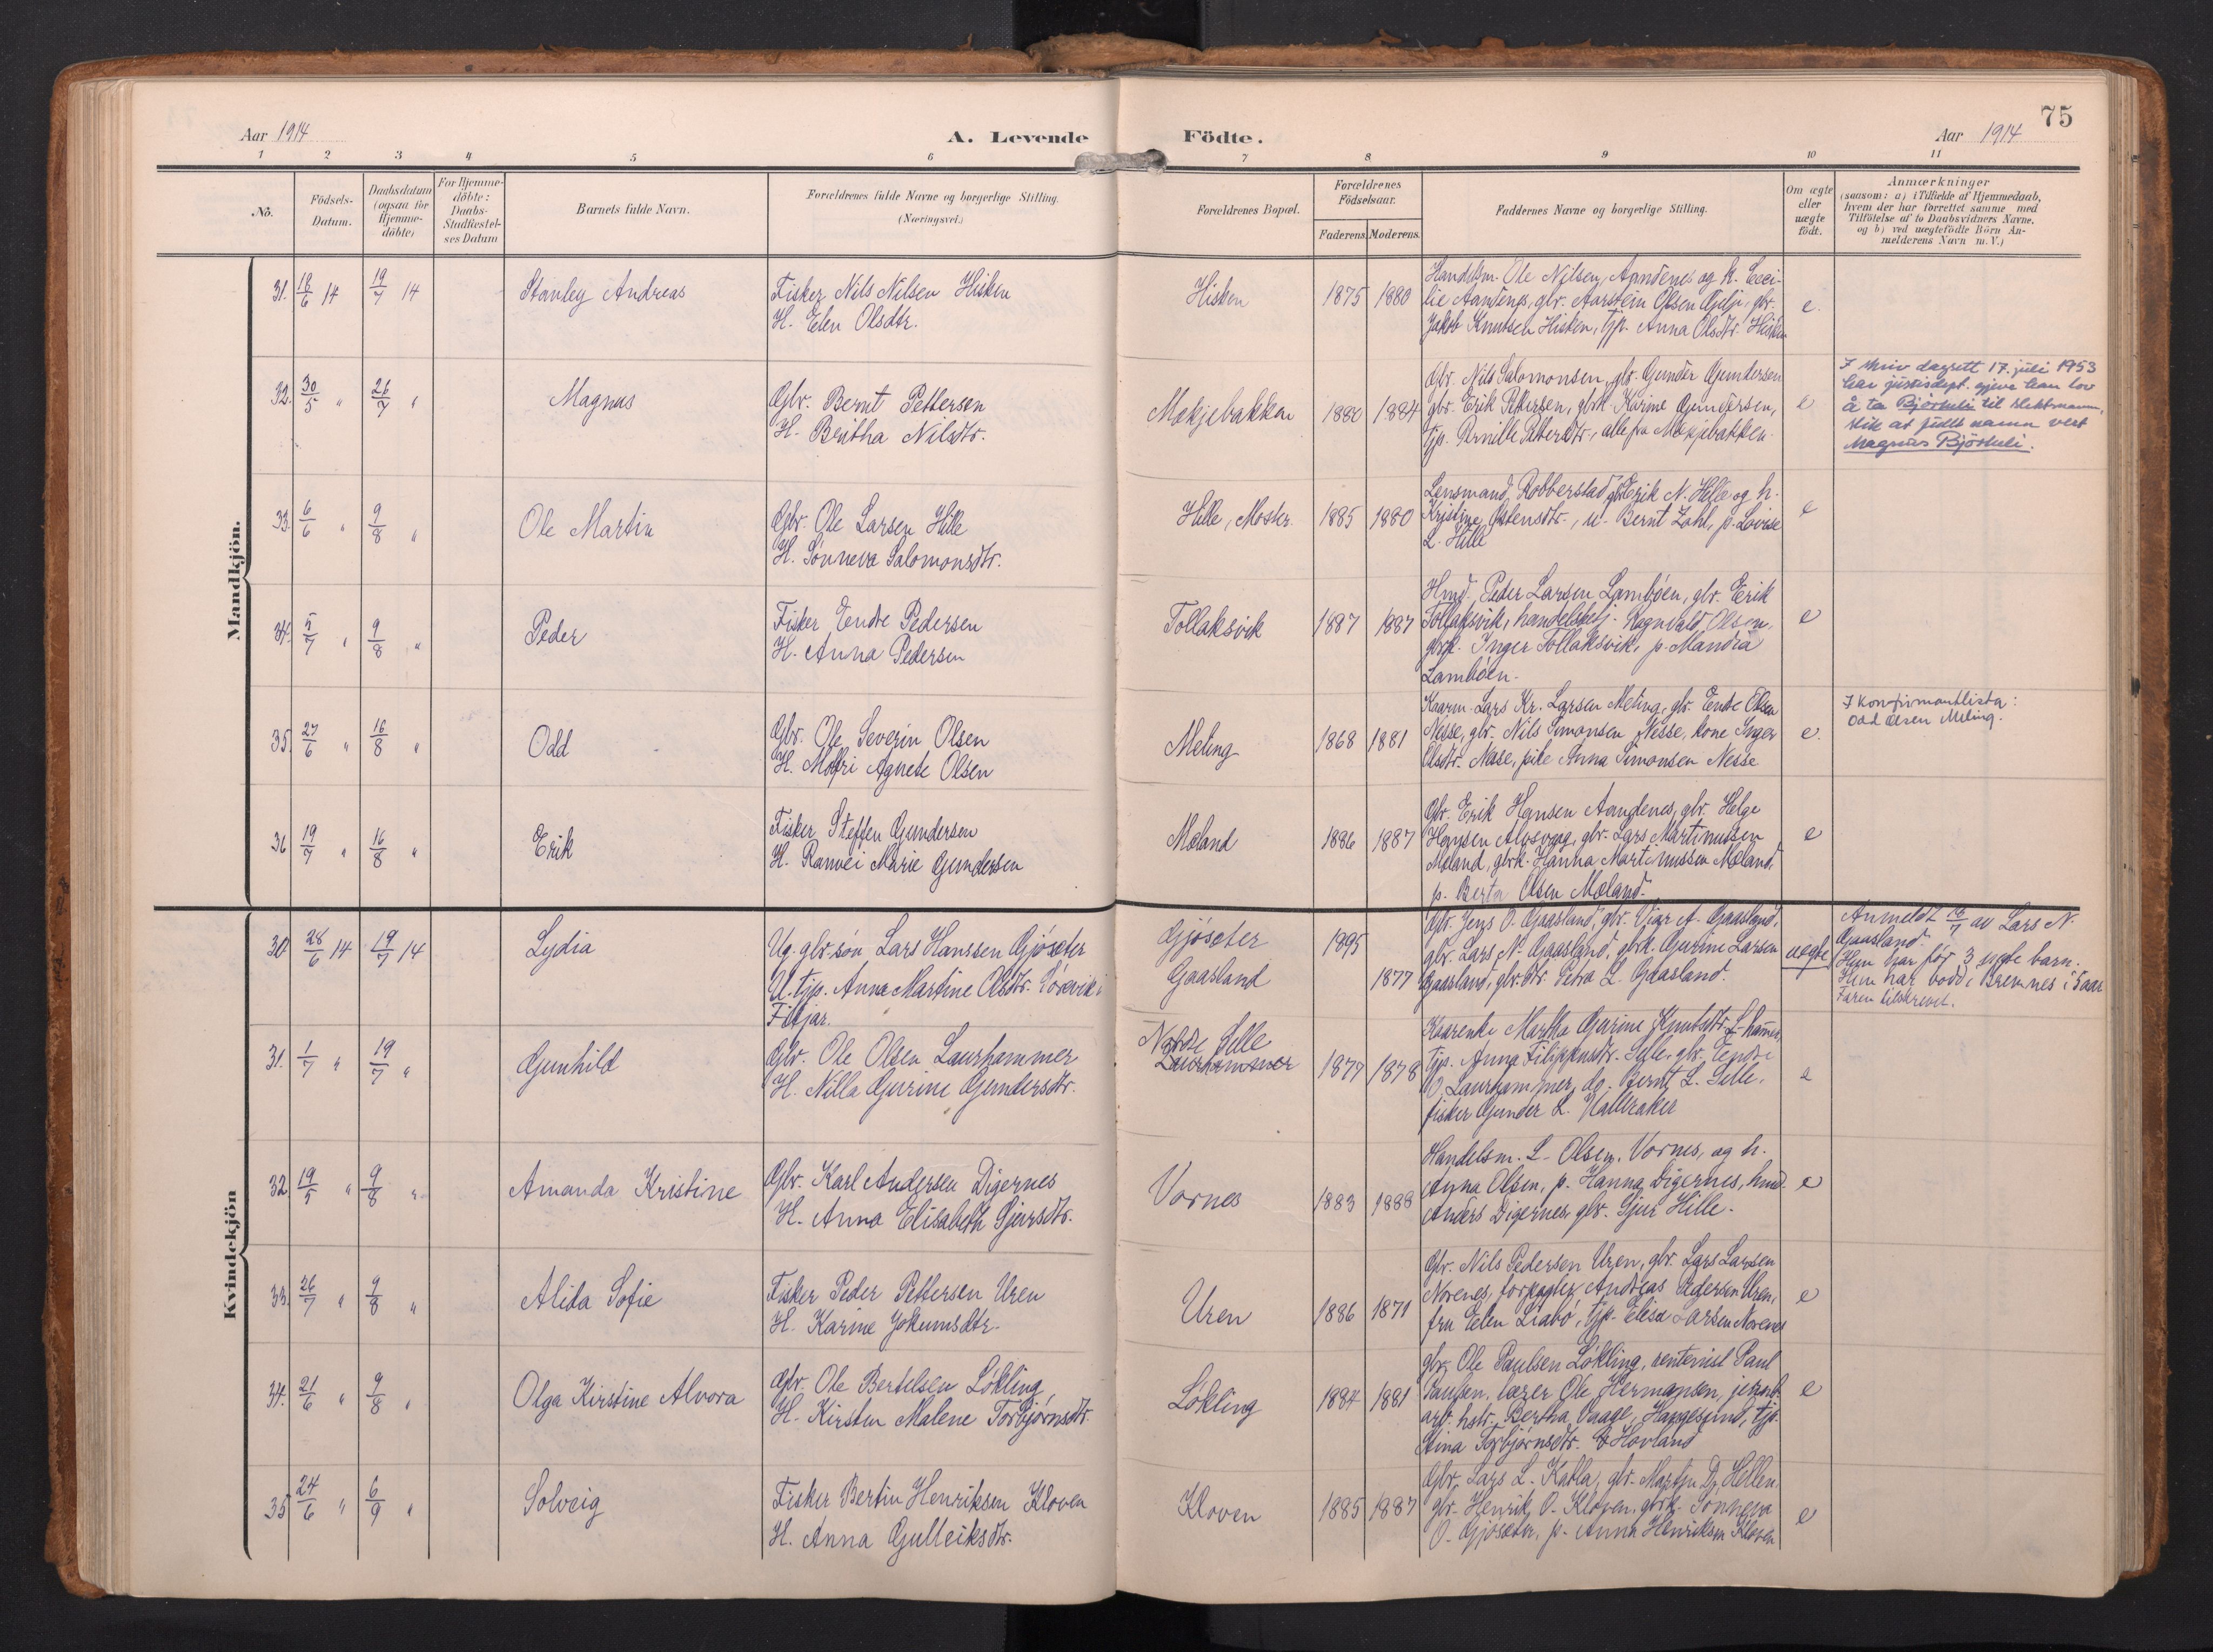 75
Aar 1914
A. Levende Födte.
Aar 1914
1 2 3 4 5 6 7 8 9 10 11
No.
Födsels-
Datum.
Daabsdatum
(ogsaa for
Hjemme-
döbte)
For Hjemme-
döbte:
Daabs-
Stadfæstel-
ses Datum
Barnets fulde Navn.
Forældrenes fulde Navne og borgerlige Stilling.
(Næringsvei.)
Forældrenes Bopæl.
Forældrenes
Födselsaar.
Faderens. Moderens.
Faddernes Navne og borgerlige Stilling.
Om ægte
eller
uægte
født.
Anmærkninger
(saasom: a) i Tilfælde af Hjemmedaab,
hvem der har forrettet samme med
Tilföielse af to Daabsvidners Navne,
og b) ved uægtefödte Börn An-
melderens Navn m. V.)
Mandkjön.
31. 18/6 14 19/7 14 Stanley Andreas
Fisker Nils Nilsen Hisken
H. Elen Olsdtr.
Hisken 1875 1880
Handelsm. Ole Nilsen, Aandenes og h. Ceci-
lie Aandenes, gbr. Aarstein Olsen, gbr.
Jakob Knutsen Hisken, tjp. Anna Olsdtr. Hisken
e.
32. 30/5 " 26/7 " Magnus
Gbr. Bernt Pettersen
H. Britha Nilsdtr.
Mækjebakken 1880 1884
Gbr. Nils Salomonsen, gbr. Gunder Gundersen
gbr. Erik Pettersen, gbrk. Karine Gundersen,
tjp. Pernille Pettersdtr., alle fra Mækjebakken.
e
I skriv dagsett 17. juli 1953
har justisdept. gjeve han lov
å ta Bjørkeli til slektsnamn,
slik at fullt namn vert
Magnus Bjørkeli.
33. 6/6 " 9/8 " Ole Martin
Gbr. Ole Larsen Hille
H. Sønneva Salomonsdtr.
Hille, Moster. 1885 1880
Lensmand Robberstad, gbr. Erik N. Hille og h.
Kristine Østensdtr., u. Bernt Zahl, p. Lovise
L. Hille
e
34. 5/7 " 9/8 " Peder
Fisker Endre Pedersen
H. Anna Pedersen
Tollaksvik 1887 1887
Hmd. Peder Larsen Lambøen, gbr. Erik
Tollaksvik, handelsbetj. Ragnvald Olsen,
gbrk. Inger Tollaksvik, p. Mandra
Lambøen.
e
35. 27/6 " 16/8 " Odd
Gbr. Ole Severin Olsen
H. Molfri Agnete Olsen
Meling 1868 1881
Kaarm. Lars Kr. Larsen Meling, gbr. Endre Olsen
Nesse, gbr. Nils Simonsen Nesse, kone Inger
Olsdtr. Nesse, pike Anna Simonsen Nesse
e.
I konfirmantlista:
Odd Olsen Meling.
36 19/7 " 16/8 " Erik
Fisker Steffen Gundersen
H. Ranvei Marie Gundersen
Mæland 1886 1887
Gbr. Erik Hansen Aandenes, gbr. Helge
Hansen Alvsvaag, gbr. Lars Martinussen
Mæland, gbrk. Hanna Martinussen Mæland,
p. Berta Olsen Mæland.
e
Kvindekjön
30. 28/6 14 19/7 14 Lydia
Ug. gbr. søn Lars Hanssen Gjøsæter
U. tjp. Anna Martine Olsdtr. i
Fitjar.
Gjøsæter
Gaasland
1895
1877
Gbr. Jens O. Gaasland, gbr. Vier A. Gaasland,
gbr. Lars N. Gaasland, gbrk. Gurine Larsen
Gaasland, gbr. dtr. Petra L. Gaasland.
uegte
Anmeldt 18/7 av Lars N.
Gaasland.
Hun har før 3 uegte barn.
Hun har bodd i Bremnes i 5 aar
Faren tilskrevet.
31. 1/7 " 19/7 " Gunhild
Gbr. Ole Olsen Laurhammer
H. Nilla Gurine Gundersdtr.
Nordre Selle
Laurhammer
1877 1878
Kaarenke Martha Gurine Knutsdtr. L-hamer,
tjp. Anna Filippusdtr. Selle, gbr. Endre
O. Laurhammer, do. Bernt L. Selle,
fisker Gunder L. Hallraker
e
32. 19/5 " 9/8 " Amanda Kristine
Gbr. Karl Andersen Digernes
H. Anna Elisabeth Sjursdtr.
Vornes 1883 1888
Handelsm. L. Olsen, Vornes, og h.
Anna Olsen, p. Hanna Digernes, hmd.
Anders Digernes, gbr. Sjur Hille.
e
33. 26/7 " 9/8 " Alida Sofie
Fisker Peder Pettersen Uren
H. Karine Jokumsdtr.
Uren 1886 1871
Gbr. Nils Pedersen Uren, gbr. Lars Larsen
Norenes, forpagter Andreas Pedersen Uren,
fru Elen Liabø, tjp. Elisa Larsen Norenes
e
34. 21/6 " 9/8 " Olga Kirstine Alvora
Gbr. Ole Bertelsen Løkling,
H. Kirsten Malene Torbjørnsdtr.
Løkling 1884 1881
gbr. Ole Paulsen Løkling, rentenist Paul
Paulsen, lærer Ole Hermansen, jernb.
arb. hstr. Bertha Vaage, Haugesund, tjp.
Stina Torbjørnsdtr. Hovland
e
35 24/6 " 6/9 " Solveig
Fisker Bertin Henriksen Kloven
H. Anna Gulleiksdtr.
Kloven 1885 1887
Gbr. Lars L. Katla, gbr. Martin D. Hellen,
gbr. Henrik O. Kloven, gbrk. Sønneva
O. Gjøsæter, p. Anna Henriksen Kloven
e